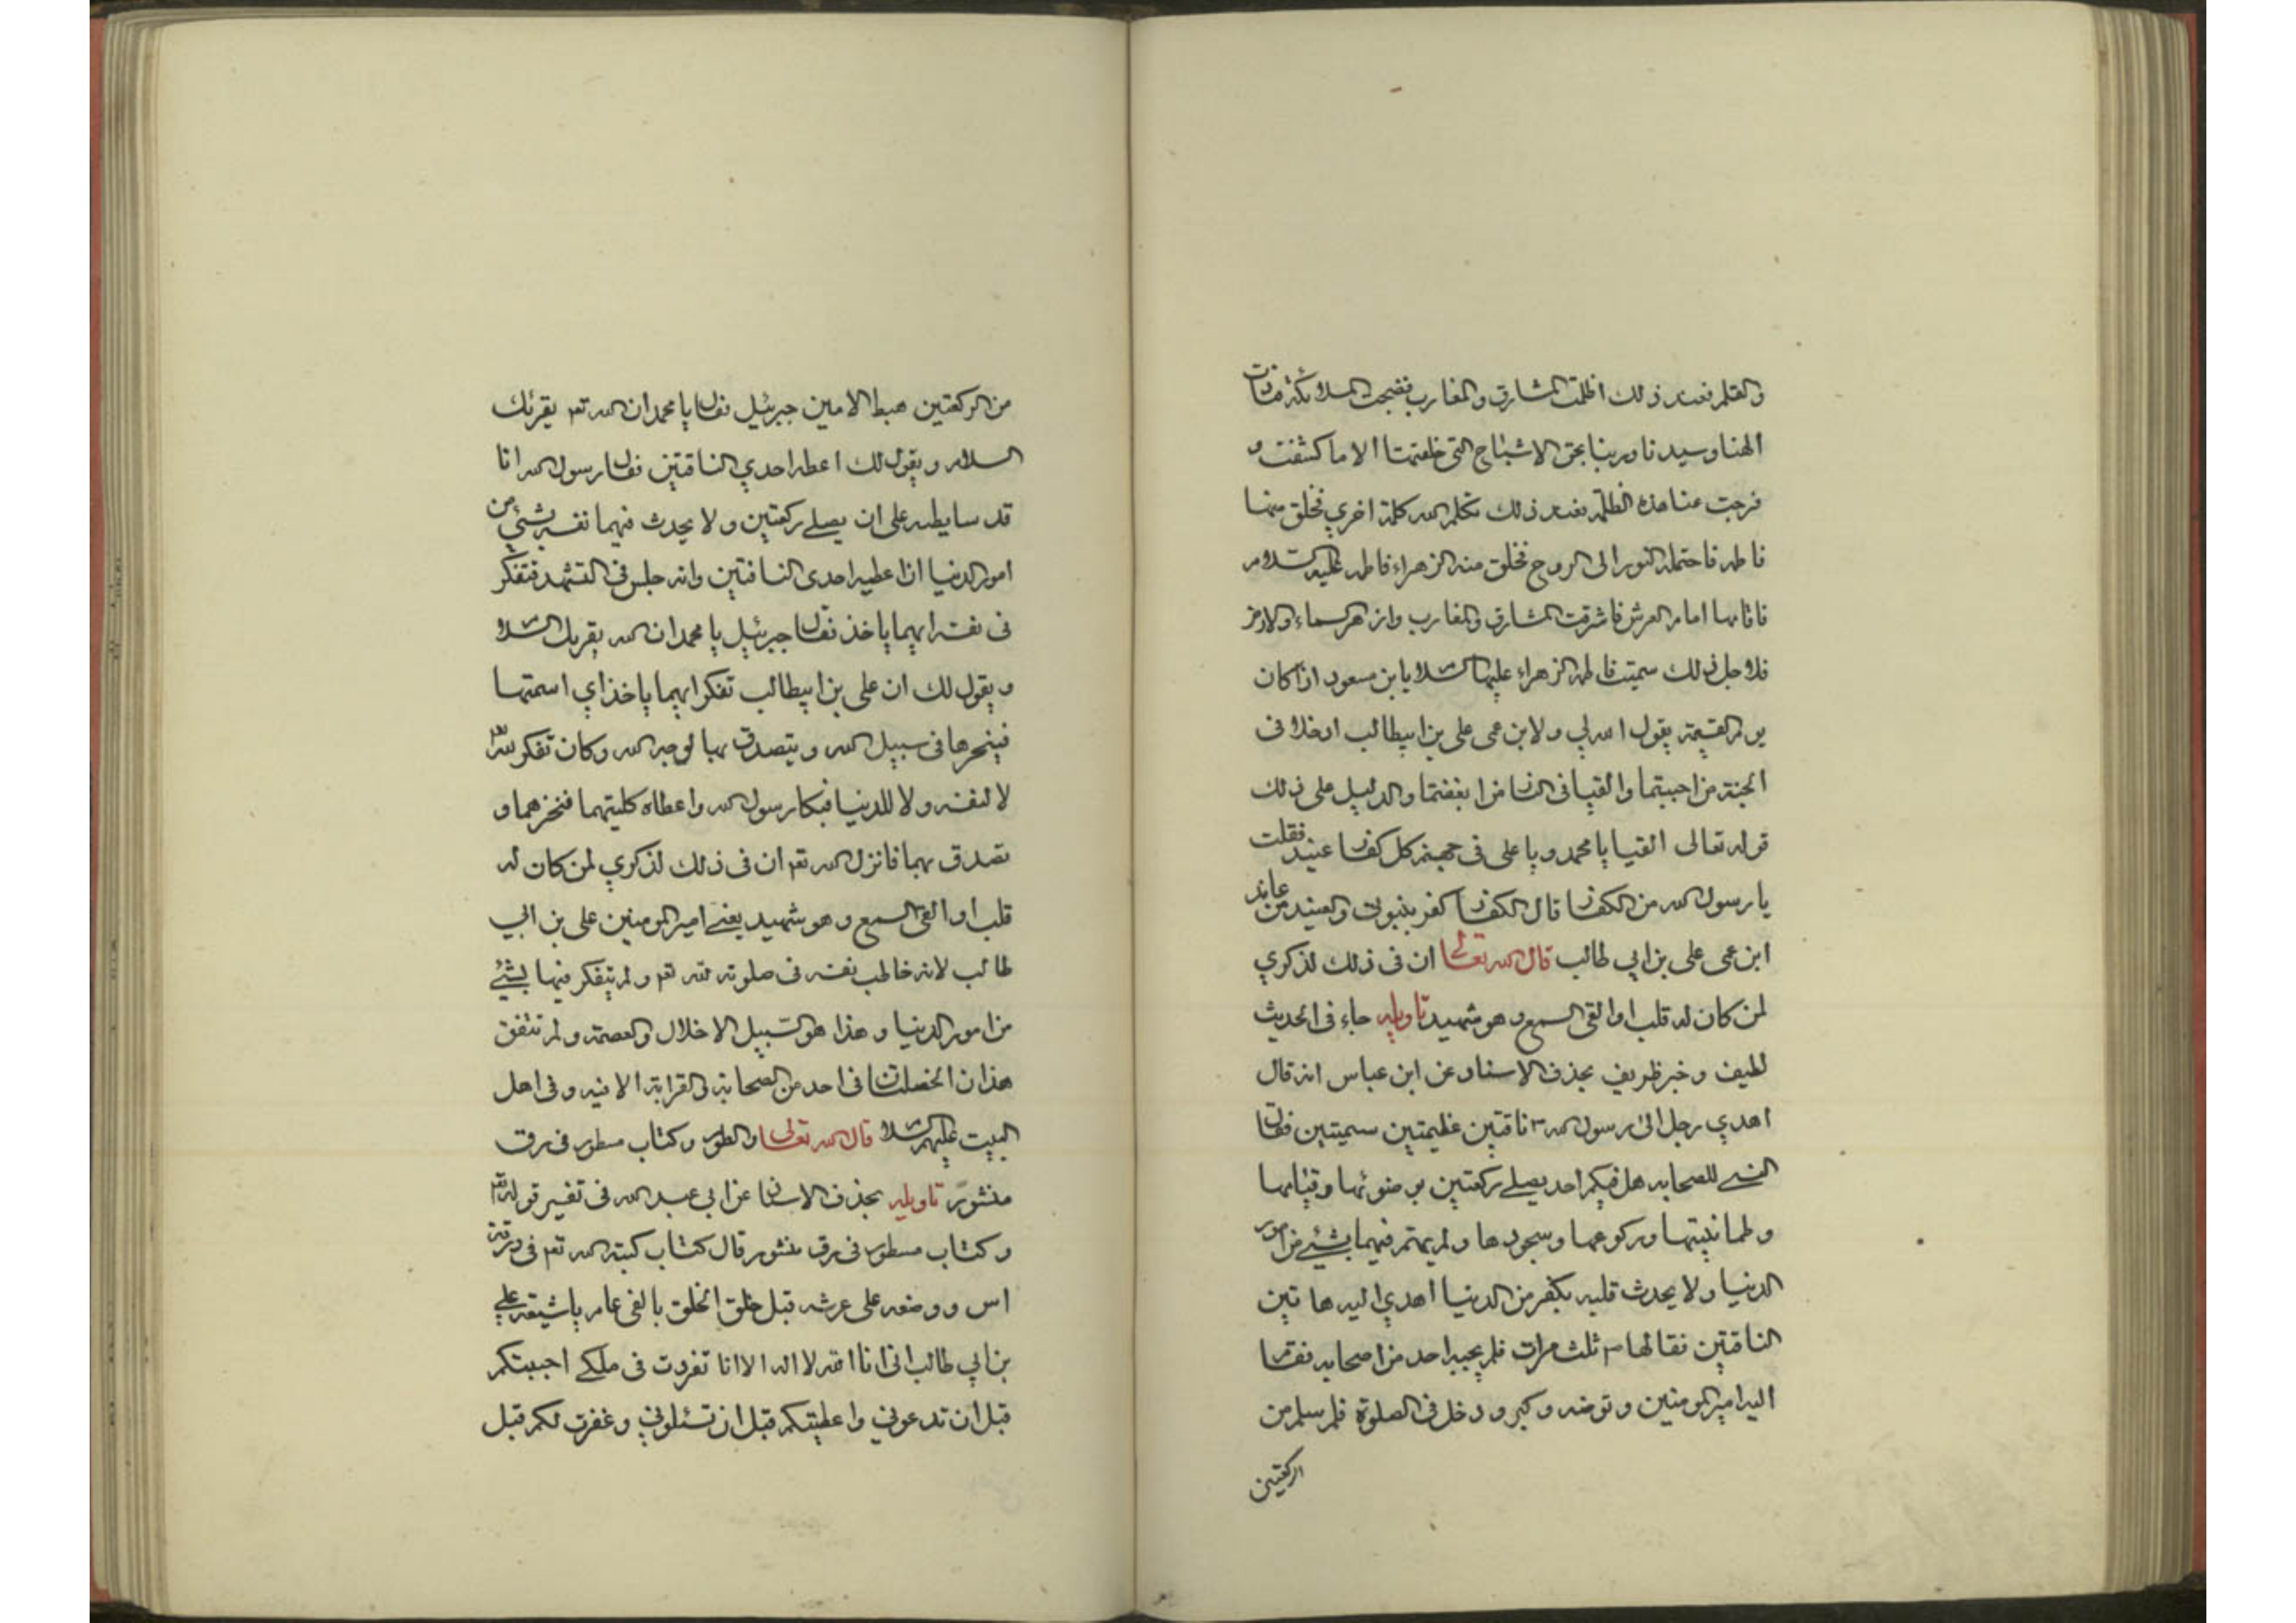 والقلم فعند ذلك اظلمت المشارق والمغارب فضجت الملائكة فنادت
الهنا وسيدنا وربنا بحق الاشباح التي خلقتها الا ما كشفت و
فرجت عنا هذه الظلمة فعند ذلك تكلم الله كلمة اخري فخلق منها
فاطمه فاحتملت النور الى الروح فخلق منه الزهراء فاطمه عليه السلام
فاقامها امام العرش فاشرقت المشارق والمغارب وازهر السماء والارض
فلاجل ذلك سميت فاطمه الزهراء عليها السلام يا ابن مسعود اذا كان
يوم القيمة يقول الله لي ولابن عمي علي بن ابيطالب ادخلا في
الجنة من احببتما والقيا في النار من ابغضتما والدليل على ذلك
قوله تعالى القيا يا محمد ويا على في جهنم كل كفار عنيد فقلت
يا رسول الله من الكفار قال الكفار كفر بنبوتي والعنيد من عاند
ابن عمى علي بن ابي طالب قال الله تعالى ان في ذلك لذكري
لمن كان له قلب او القى السمع وهو شهيد تاويله جاء في الحديث
لطيف وخبر ظريف بحذف الاسناد عن ابن عباس انه قال
اهدي رجل الى رسول الله ص ناقتين عظيمتين سميتين فقال
النبي للصحابه هل فيكم احد يصلي ركعتين بوضوئها وقيامها
وطمانيتها وركوعها وسجودها ولم يهتم فيهما بشيء من امور
الدنيا ولا يحدث قلبه بكفر من الدنيا اهدي اليه هاتين
الناقتين فقالها ص ثلث مرات فلم يجبه احد من اصحابه فقام
اليه امير المومنين وتوضه وكبر ودخل في الصلوة فلم سلم من
الركعتين
من الركعتين هبط الامين جبرئيل فقال يا محمد ان الله تع يقرئك
السلام ويقول لك اعطه احدي الناقتين فقال رسول الله انا
قد سايطه على ان يصلي ركعتين ولا يحدث فيهما نفسه بشيء من
امور الدنيا ان اعطيه احدى الناقتين وانه جلس في التشهد فتفكر
في نفسه ايهما ياخذ فقال جبرئيل يا محمد ان الله يقريك السلام
ويقول لك ان علي بن ابيطالب تفكر ايهما ياخذ اي اسمتها
فينحرها في سبيل الله ويتصدق بها لوجه الله وكان تفكر لله تع
لا لنفسه ولا للدنيا فبكا رسول الله واعطاه كليتهما فنحرهما و
تصدق بهما فانزل الله تع ان في ذلك لذكري لمن كان له
قلب او القى السمع وهو شهيد يعني امير المومنين علي بن ابي
طالب لانه خاطب نفسه في صلوته لله تع ولم يتفكر فيها بشيء
من امور الدنيا وهذا هو السبيل الاخلال والعصمة ولم تتفق
هذان الخصلتان في احد من الصحابة والقرابة الا فيه وفي اهل
البيت عليهم السلام قال الله تعالى والطور وكتاب مسطور في رق
منشور تاويله بحذف الاسناد عن ابي عبد الله في تفسير قوله تع
وكتاب مسطور في رق منشور قال كتاب كتبه الله تع في ورقة
اس ووضعه على عرشه قبل خلق الخلق بالفي عام يا شيعة علي
بن ابي طالب اني انا الله لا اله الا انا تفردت في ملكي اجبتكم
قبل ان تدعوني واعطيتكم قبل ان تسئلوني وغفرت لكم قبل